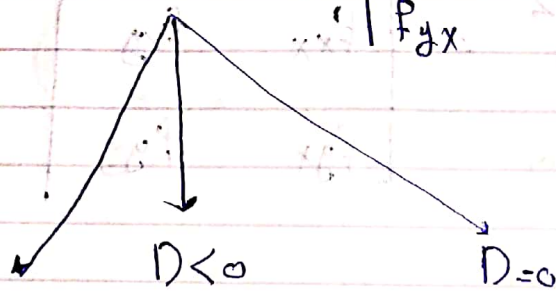 | f_yx
D<0 D=0